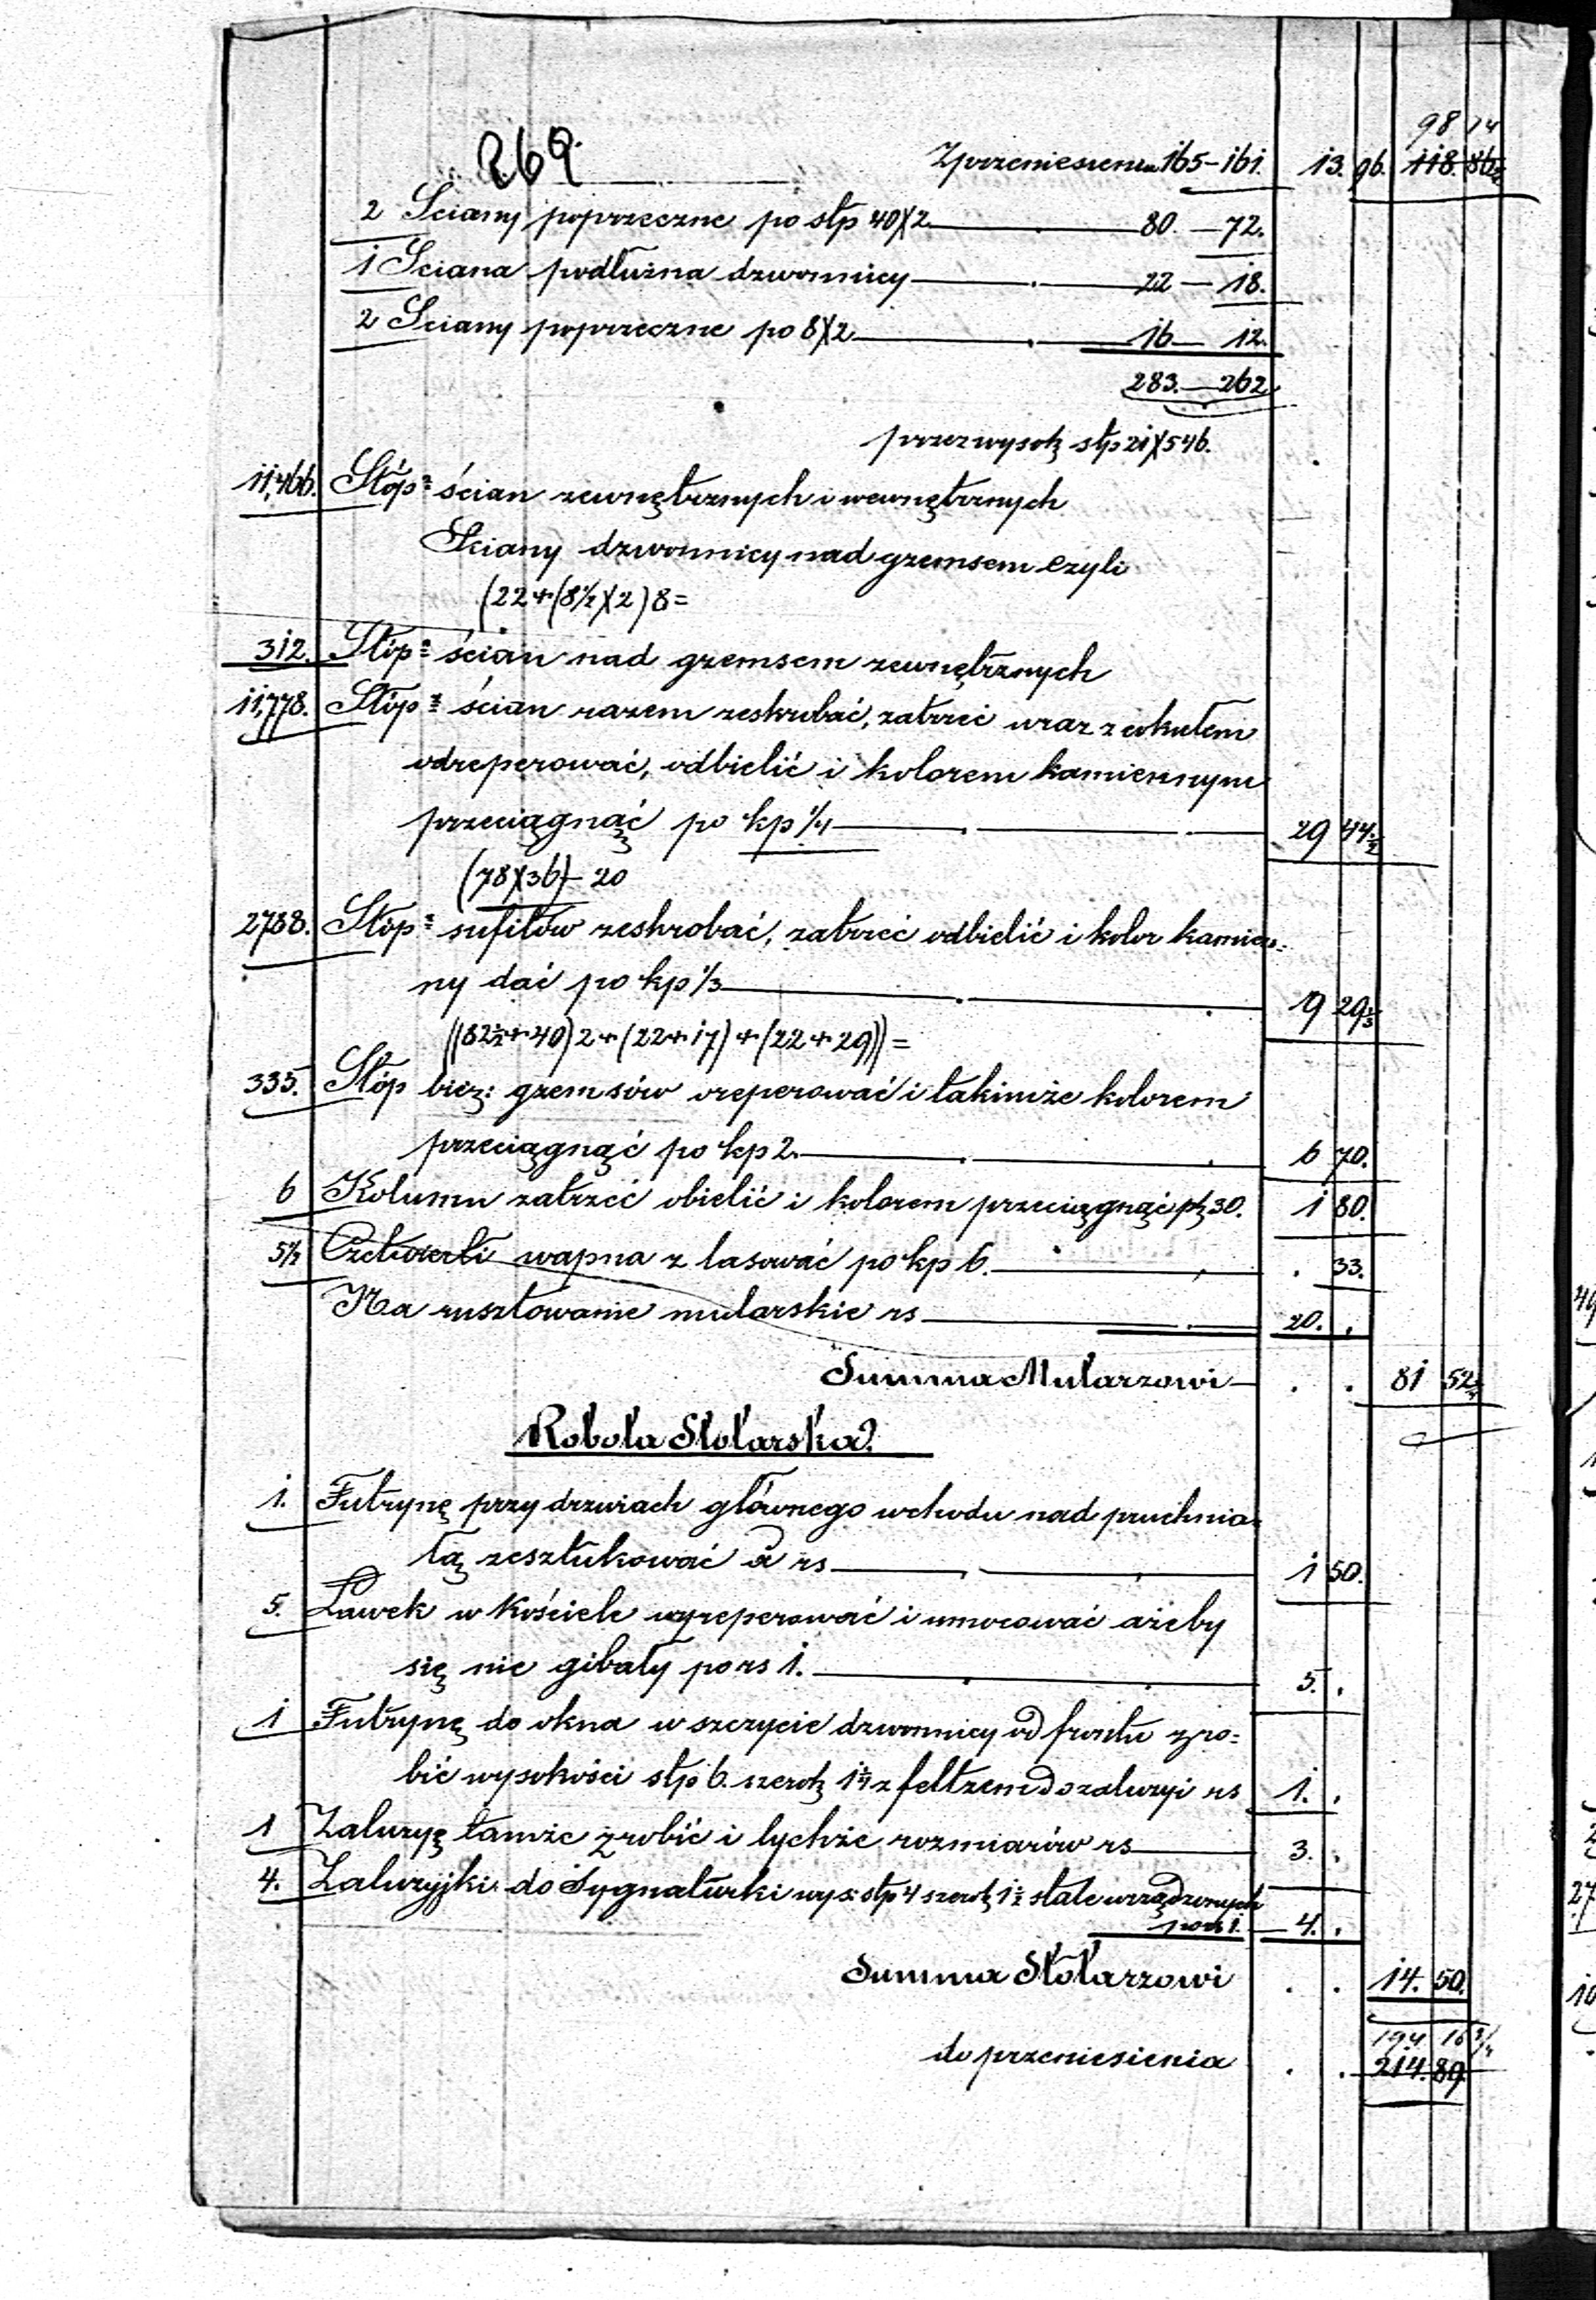 98 14
269.
Zprzeniesienia 165-161. 13. 96. 118. 86
2 Sciany poprzeczne po stp 40)(2 80. - 72.
1 Sciana podłużna dzwonnicy 22 - 18.
2 Sciany poprzeczne po 8)(2 16 - 12.
283. - 262
przez wysok stp 21)(546.
11,466. Stóp² ścian zewnętrznych i wewnętrznych
Sciany dzwonnicy nad gzemsem czyli
(22+(8½)(2)8=
312. Stóp² ścian nad gzemsem zewnętrznych
11,778. Stóp² ścian razem zeskrobać, zatrzeć wraz z cokułem
odreperować, odbielić i kolorem kamiennym
przeciągnąć po kp ¼ 29 44½
(78)(36)-20
2788. Stóp² sufitów zeskrobać, zatrzeć odbielić i kolor kamien=
ny dać po kp ⅓ 19 29⅓
((82½+40)2+(22+17)+(22+29))=
335. Stóp bież: gzemsów oreperować i takimże kolorem
przeciągnąć po kp 2. 6 70.
6 Kolumn zatrzeć obielić i kolorem przeciągnąć pk 30. 1 80.
5½ Czetwerti wapna z lasować po kp 6. . 33.
Na rusztowanie mularskie rs 20. .
Summa Mularzowi . . 81 52
Robota Stolarska.
1. Futrynę przy drzwiach głównego wchodu nad pruchnia=
łą zesztukować a rs 1 50.
5. Ławek w Kościele wyreperować i umocować ażeby
się nie gibały po rs 1. 5. .
1 Futrynę do okna w szczycie dzwonnicy od frontu zro=
bić wysokości stp 6. szerok 1¾ z feltzem do zaluzyi rs 1. .
1 Zaluzyę tamże zrobić i tychże rozmiarów rs 3. .
4. Zaluzyjki do Sygnaturki wys: stp 4 szerok 1½ stale urządzonych
po rs 1. 4. .
Summa Stolarzowi . . 14. 50.
194 16 ¾
do przeniesienia . . 214. 89